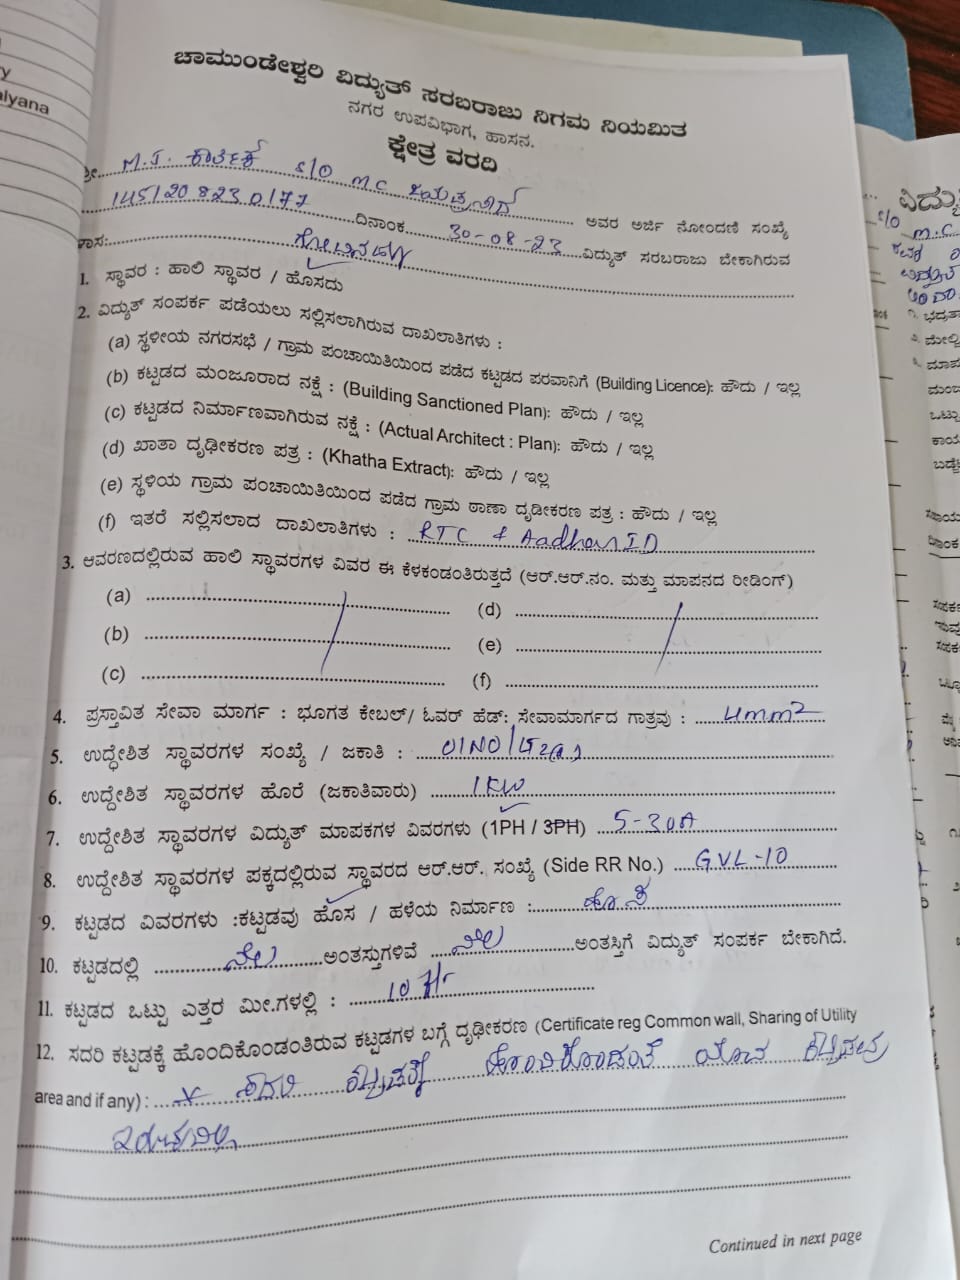 ಚಾಮುಂಡೇಶ್ವರಿ ವಿದ್ಯುತ್ ಸರಬರಾಜು ನಿಗಮ ನಿಯಮಿತ
ನಗರ ಉಪವಿಭಾಗ, ಹಾಸನ.
ಕ್ಷೇತ್ರ ವರದಿ
ಶ್ರೀ. M.J. ಕಾರ್ತಿಕ್ S/O MC ಜಯಪ್ರಕಾಶ್ ಅವರ ಅರ್ಜಿ ನೋಂದಣಿ ಸಂಖ್ಯೆ
1451208230177 ದಿನಾಂಕ 30-08-23 ವಿದ್ಯುತ್ ಸರಬರಾಜು ಬೇಕಾಗಿರುವ
1. ಸ್ಥಾವರ : ಹಾಲಿ ಸ್ಥಾವರ / ಹೊಸದು
2. ವಿದ್ಯುತ್ ಸಂಪರ್ಕ ಪಡೆಯಲು ಸಲ್ಲಿಸಲಾಗಿರುವ ದಾಖಲಾತಿಗಳು :
(a) ಸ್ಥಳೀಯ ನಗರಸಭೆ / ಗ್ರಾಮ ಪಂಚಾಯಿತಿಯಿಂದ ಪಡೆದ ಕಟ್ಟಡದ ಪರವಾನಿಗೆ (Building Licence): ಹೌದು / ಇಲ್ಲ
(b) ಕಟ್ಟಡದ ಮಂಜೂರಾದ ನಕ್ಷೆ : (Building Sanctioned Plan): ಹೌದು / ಇಲ್ಲ
(c) ಕಟ್ಟಡದ ನಿರ್ಮಾಣವಾಗಿರುವ ನಕ್ಷೆ : (Actual Architect : Plan): ಹೌದು / ಇಲ್ಲ
(d) ಖಾತಾ ದೃಢೀಕರಣ ಪತ್ರ : (Khatha Extract): ಹೌದು / ಇಲ್ಲ
(e) ಸ್ಥಳಿಯ ಗ್ರಾಮ ಪಂಚಾಯಿತಿಯಿಂದ ಪಡೆದ ಗ್ರಾಮ ಠಾಣಾ ದೃಢೀಕರಣ ಪತ್ರ : ಹೌದು / ಇಲ್ಲ
(f) ಇತರೆ ಸಲ್ಲಿಸಲಾದ ದಾಖಲಾತಿಗಳು : RTC & Aadhar ID
3. ಆವರಣದಲ್ಲಿರುವ ಹಾಲಿ ಸ್ಥಾವರಗಳ ವಿವರ ಈ ಕೆಳಕಂಡಂತಿರುತ್ತದೆ (ಆರ್.ಆರ್.ನಂ. ಮತ್ತು ಮಾಪನದ ರೀಡಿಂಗ್)
(a) (d)
(b) (e)
(c) (f)
4. ಪ್ರಸ್ತಾವಿತ ಸೇವಾ ಮಾರ್ಗ : ಭೂಗತ ಕೇಬಲ್/ ಓವರ್ ಹೆಡ್: ಸೇವಾಮಾರ್ಗದ ಗಾತ್ರವು : 4mm2
5. ಉದ್ಧೇಶಿತ ಸ್ಥಾವರಗಳ ಸಂಖ್ಯೆ / ಜಕಾತಿ : 01NO/LT2(a)
6. ಉದ್ದೇಶಿತ ಸ್ಥಾವರಗಳ ಹೊರೆ (ಜಕಾತಿವಾರು) 1KW
7. ಉದ್ದೇಶಿತ ಸ್ಥಾವರಗಳ ವಿದ್ಯುತ್ ಮಾಪಕಗಳ ವಿವರಗಳು (1PH / 3PH) 5-30A
8. ಉದ್ದೇಶಿತ ಸ್ಥಾವರಗಳ ಪಕ್ಕದಲ್ಲಿರುವ ಸ್ಥಾವರದ ಆರ್.ಆರ್. ಸಂಖ್ಯೆ (Side RR No.) GVL-10
9. ಕಟ್ಟಡದ ವಿವರಗಳು :ಕಟ್ಟಡವು ಹೊಸ / ಹಳೆಯ ನಿರ್ಮಾಣ : ಹೊಸ
10. ಕಟ್ಟಡದಲ್ಲಿ ನೆಲ ಅಂತಸ್ತುಗಳಿವೆ ನೆಲ ಅಂತಸ್ತಿಗೆ ವಿದ್ಯುತ್ ಸಂಪರ್ಕ ಬೇಕಾಗಿದೆ.
11. ಕಟ್ಟಡದ ಒಟ್ಟು ಎತ್ತರ ಮೀ.ಗಳಲ್ಲಿ : 10
12. ಸದರಿ ಕಟ್ಟಡಕ್ಕೆ ಹೊಂದಿಕೊಂಡಂತಿರುವ ಕಟ್ಟಡಗಳ ಬಗ್ಗೆ ದೃಢೀಕರಣ (Certificate reg Common wall, Sharing of Utility
area and if any) : ಸದರಿ ಕಟ್ಟಡಕ್ಕೆ ಹೊಂದಿಕೊಂಡಂತೆ ಯಾವ ಕಟ್ಟಡವು
ಇರುವುದಿಲ್ಲ
Continued in next page